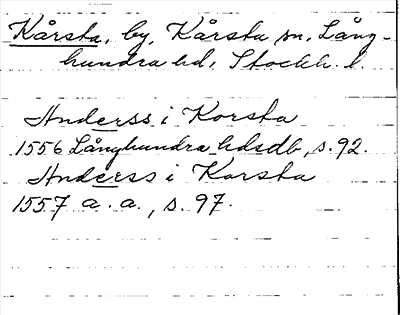 Kårsta, by, Kårsta sn, Lång-
hundra hd, Stockh. l.
Anderss i Korsta
1556 Långhundra hdsdb, s. 92.
Anderss i Karsta
1557 a. a., s. 97.